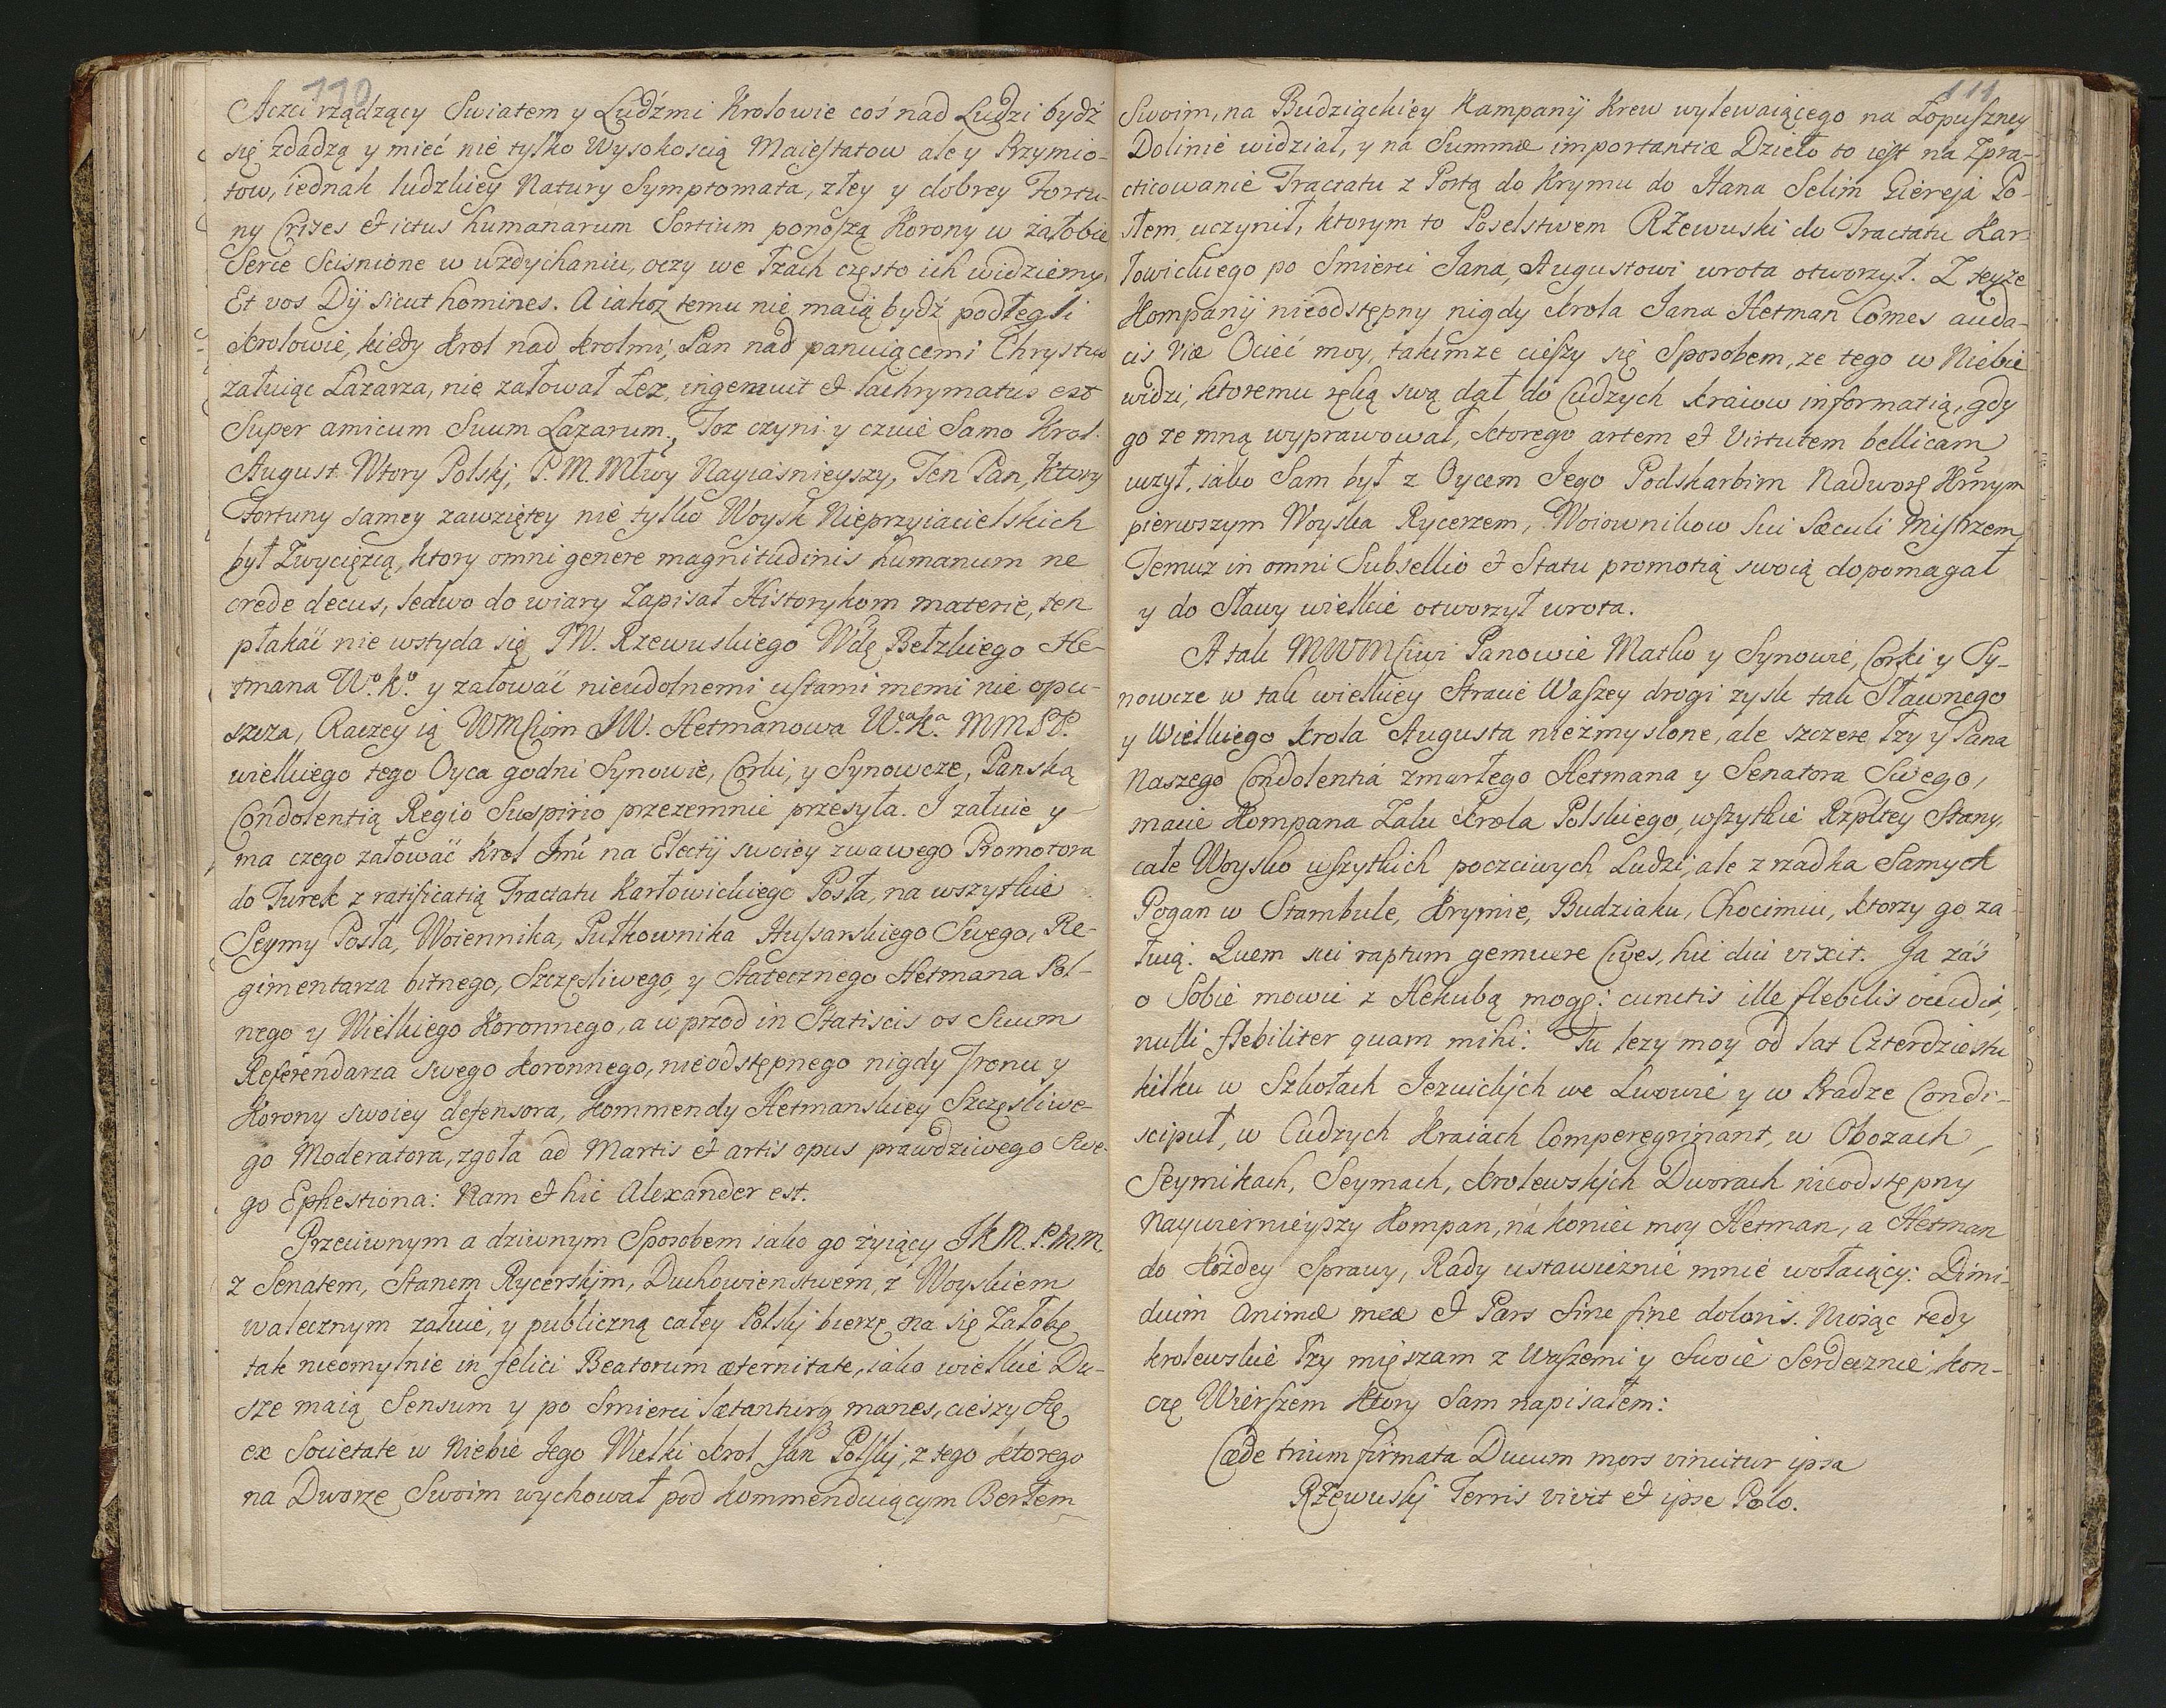 110
Aczci rządzący Swiatem y Ludźmi Krolowie coś nad Ludzi bydź
się zdadzą y mieć nie tylko Wysokoscią Maiestatow ale y Przymio-
tow, iednak ludzkiey Natury Symptomata, złey y dobrey Fortu-
ny Crises et ictus humanarum Sortium ponoszą Korony w żałobie
Serce Scisnione w wzdychaniu, oczy we Łzach często ich widziemy.
Et vos Dij sicut homines. A iakoz temu nie maią bydź podlegli
Krolowie, kiedy Krol nad Krolmi, Pan nad panuiącemi Chrystus
załuiąc Lazarza, nie załował Łez, ingemuit et lachrymatus est
Super amicum Suum Lazarum. Toz czyni y czuie Samo Krol:
August Wtory Polskj, P. M. Młwy Nayiaśnieyszy, Ten Pan, Ktory
Fortuny samey zawziętey nie tylko Woysk Nieprzyiacielskich
był Zwycięzcą, ktory omni genere magnitudinis humanum ne
crede decus, ledwo do wiary Zapisał Historykom materie, ten
płakać nie wstyda się JW. Rzewuskiego Wdę Bełzkiego He-
tmana Wo. Ko. y załować nieudolnemi ustami memi nie opu-
szcza, Raczey ią WMCiom JW. Hetmanowa Wa. Ka. MMSP.
wielkiego tego Oyca godni Synowie, Corki, y Synowcze, Panską
Condolentią Regio Suspirio przezemnie przesyła. I załuie y
ma czego załować Krol Jmć na Electij swoiey zwawego Promotora
do Turek z ratificatią Tractatu Karłowickiego Posła, na wszytkie
Seymy Posła, Woiennika, Pułkownika Hussarskiego Swego, Re-
gimentarza bitnego, Szczęsliwego, y Statecznego Hetmana Pol-
nego y Wielkiego Koronnego, a w przod in Statiscis os Suum
Referendarza swego Koronnego, nieodstępnego nigdy Tronu y
Korony swoiey defensora, Kommendy Hetmanskiey Szczęsliwe-
go Moderatora, zgoła ad Martis et artis opus prawdziwego Swe-
go Ephestiona: Nam et hic Alexander est.
Przeciwnym a dziwnym Sposobem iako go żyiący JKM. P. M. M.
z Senatem, Stanem Rycerskjm, Duchowienstwem, z Woyskiem
walecznym załuie, y publiczną całey Polskj bierzę na się Załobę
tak nieomylnie in felici Beatorum æternitate, iako wielkie Du-
sze maią Sensum y po Smierci lætanturq manes, cieszy się
ex Societate w Niebie Jego Wielki Krol Jan Polskj, z tego ktorego
na Dworze Swoim wychował pod Kommenduiącym Berłem
111
Swoim, na Budziackiey Kampanij Krew wylewaiącego na Łopuszney
Dolinie widział, y na Summæ importantiæ Dzieło to iest na Zpra-
cticowanie Tractatu z Portą do Krymu do Hana Selim Giereja Po-
słem uczynił, ktorym to Poselstwem Rżewuski do Tractatu Kar-
łowickiego po Smierci Jana, Augustowi wrota otworzył. Z teyże
Kompanij nieodstępny nigdy Krola Jana Hetman Comes auda-
cis viæ Ociec moy, takimze cieszy się Sposobem, ze tego w Niebie
widzi, ktoremu ręką swą dał do Cudzych kraiow informatią, gdy
go ze mną wyprawował, ktorego artem et Virtutem bellicam
uczył, iako Sam był z Oycem Jego Podskarbim Nadworę Krnym
pierwszym Woyska Rycerzem, Woiownikow Sui Sæculi Mistrzem,
Temuz in omni Subsellio et Statu promotią swoią dopomagał
y do Sławy wielkie otworzył wrota.
A tak MWMCiwi Panowie Matko y Synowie, Corki y Sy-
nowcze w tak wielkiey Stracie Waszey drogi zysk tak Sławnego
y Wielkiego Krola Augusta niezmyslone, ale szczere Łzy y Pana
Naszego Condolentia zmarłego Hetmana y Senatora Swego,
macie Kompana Zalu Krola Polskiego, wszytkie Rzpltey Stany,
całe Woysko wszytkich poczciwych Ludzi, ale z rzadka Samych
Pogan w Stambule, Krymie, Budziaku, Chocimiu, ktorzy go za-
łuią. Quem sui raptum gemuere Cives, hic diu vixit. Ja zaś
o Sobie mowić z Hekubą mogę: cunctis ille flebilis occidit,
nulli flebiliter quam mihi. Tu lezy moy od lat Czterdziestu
kilku w Szkołach Jezuickjch we Lwowie y w Pradze Condi-
scipuł, w Cudzych Kraiach Comperegrinant, w Obozach,
Seymikach, Seymach, Krolewskjch Dworach nieodstępny
Naywiernieyszy Kompan, na koniec moy Hetman, a Hetman
do Każdey Sprawy, Rady ustawicznie mnie wołaiący: Dimi-
dium animæ meæ et Pars Sine fine doloris. Niosąc tedy
Krolewskie Łzy mięszam z Waszemi y Swoie Serdecznie, kon-
czę Wierszem Ktory Sam napisałem:
Cæde trium firmata Ducum mors vincitur ipsa
Rżewuskj Terris vivit et ipse Polo.